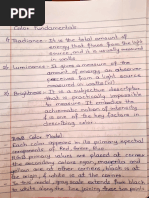 Color Fundamentals
1) Radiance - It is the total amount of
energy that flows from the light
source, and it is usually measured
in watts
2) Luminance - It gives a measure of the
amount of energy an observer
perceives from a light source
measured in
3) Brightness - It is a subjective descriptor
that is practically impossible
to measure. It embodies the
achromatic notion of intensity
& is one of the key factors in
describing color.
RGB Color Model
Each color appears in its primary spectral
of Red, Green, Blue.
RGB primary values are placed at corners
the secondary colors cyan, magenta and
yellow are at the other corners, black is at
the origin, & white at the corner
In this model, grayscale extends from black
to white along the line joining these two points